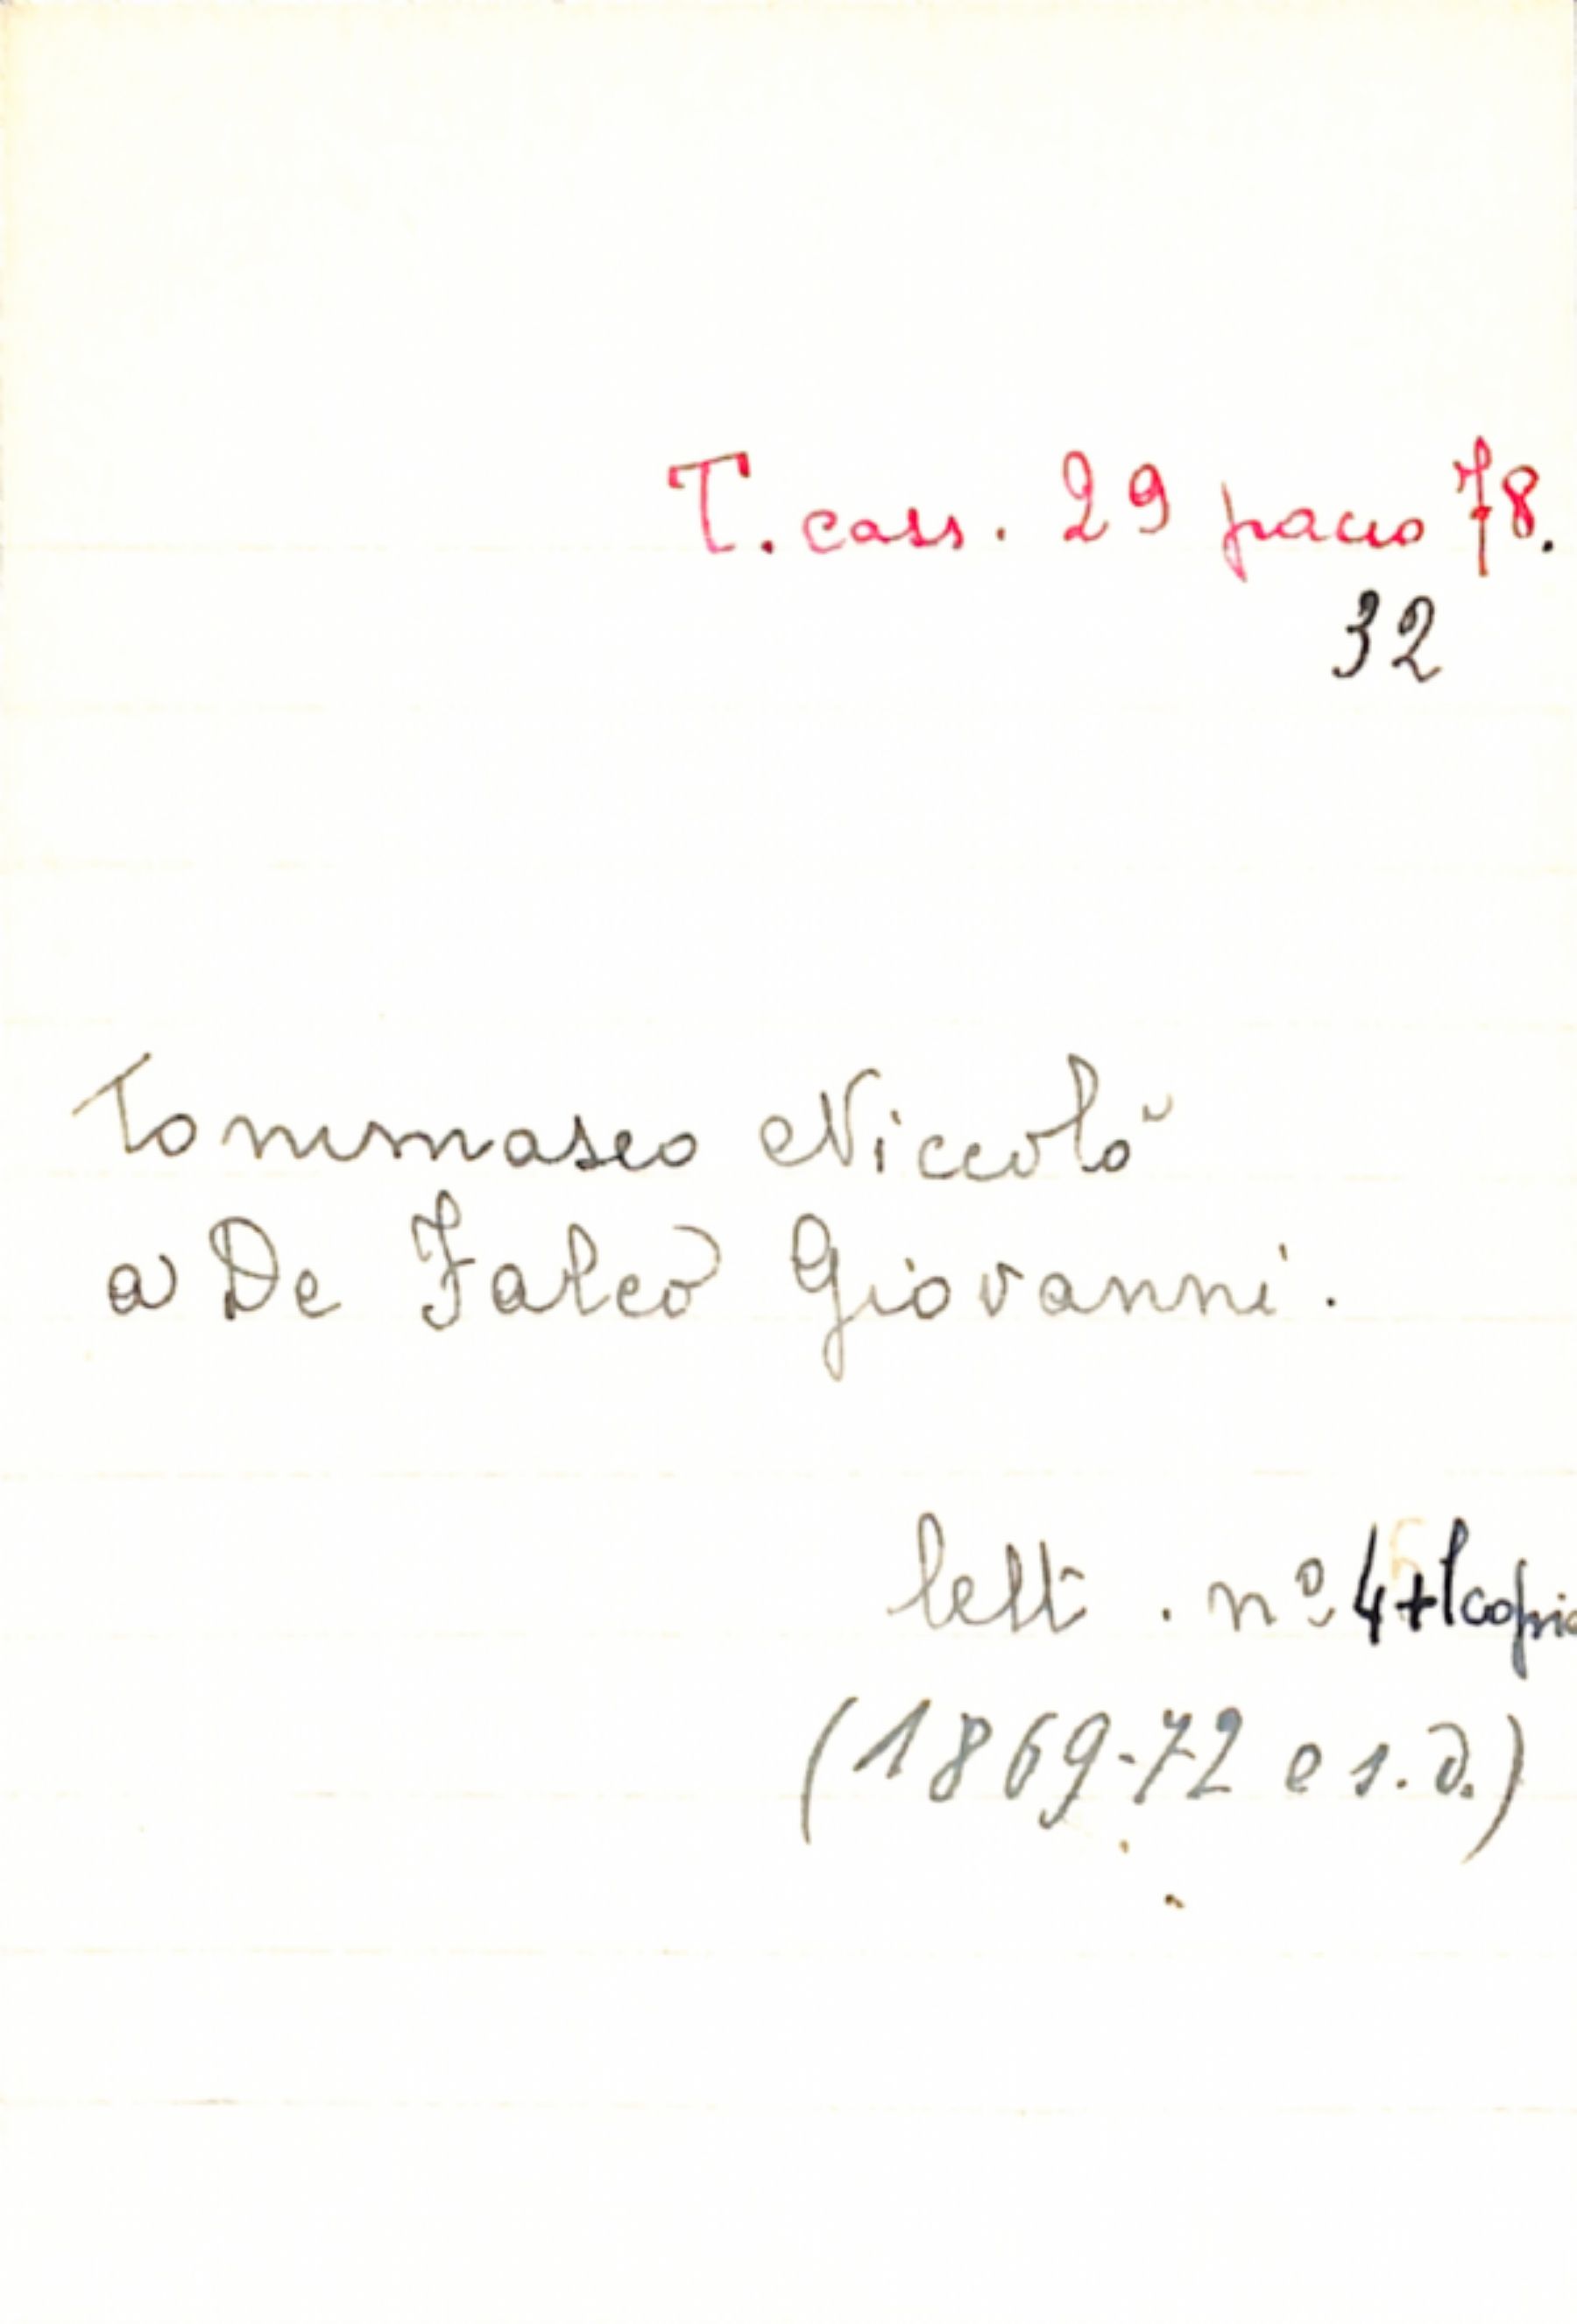 T. cass. 29 pacco 78.
32
Tommaseo Niccolò
a De Falco Giovanni.
lett. nº 4+1copia
(1869-72 e s.d.)